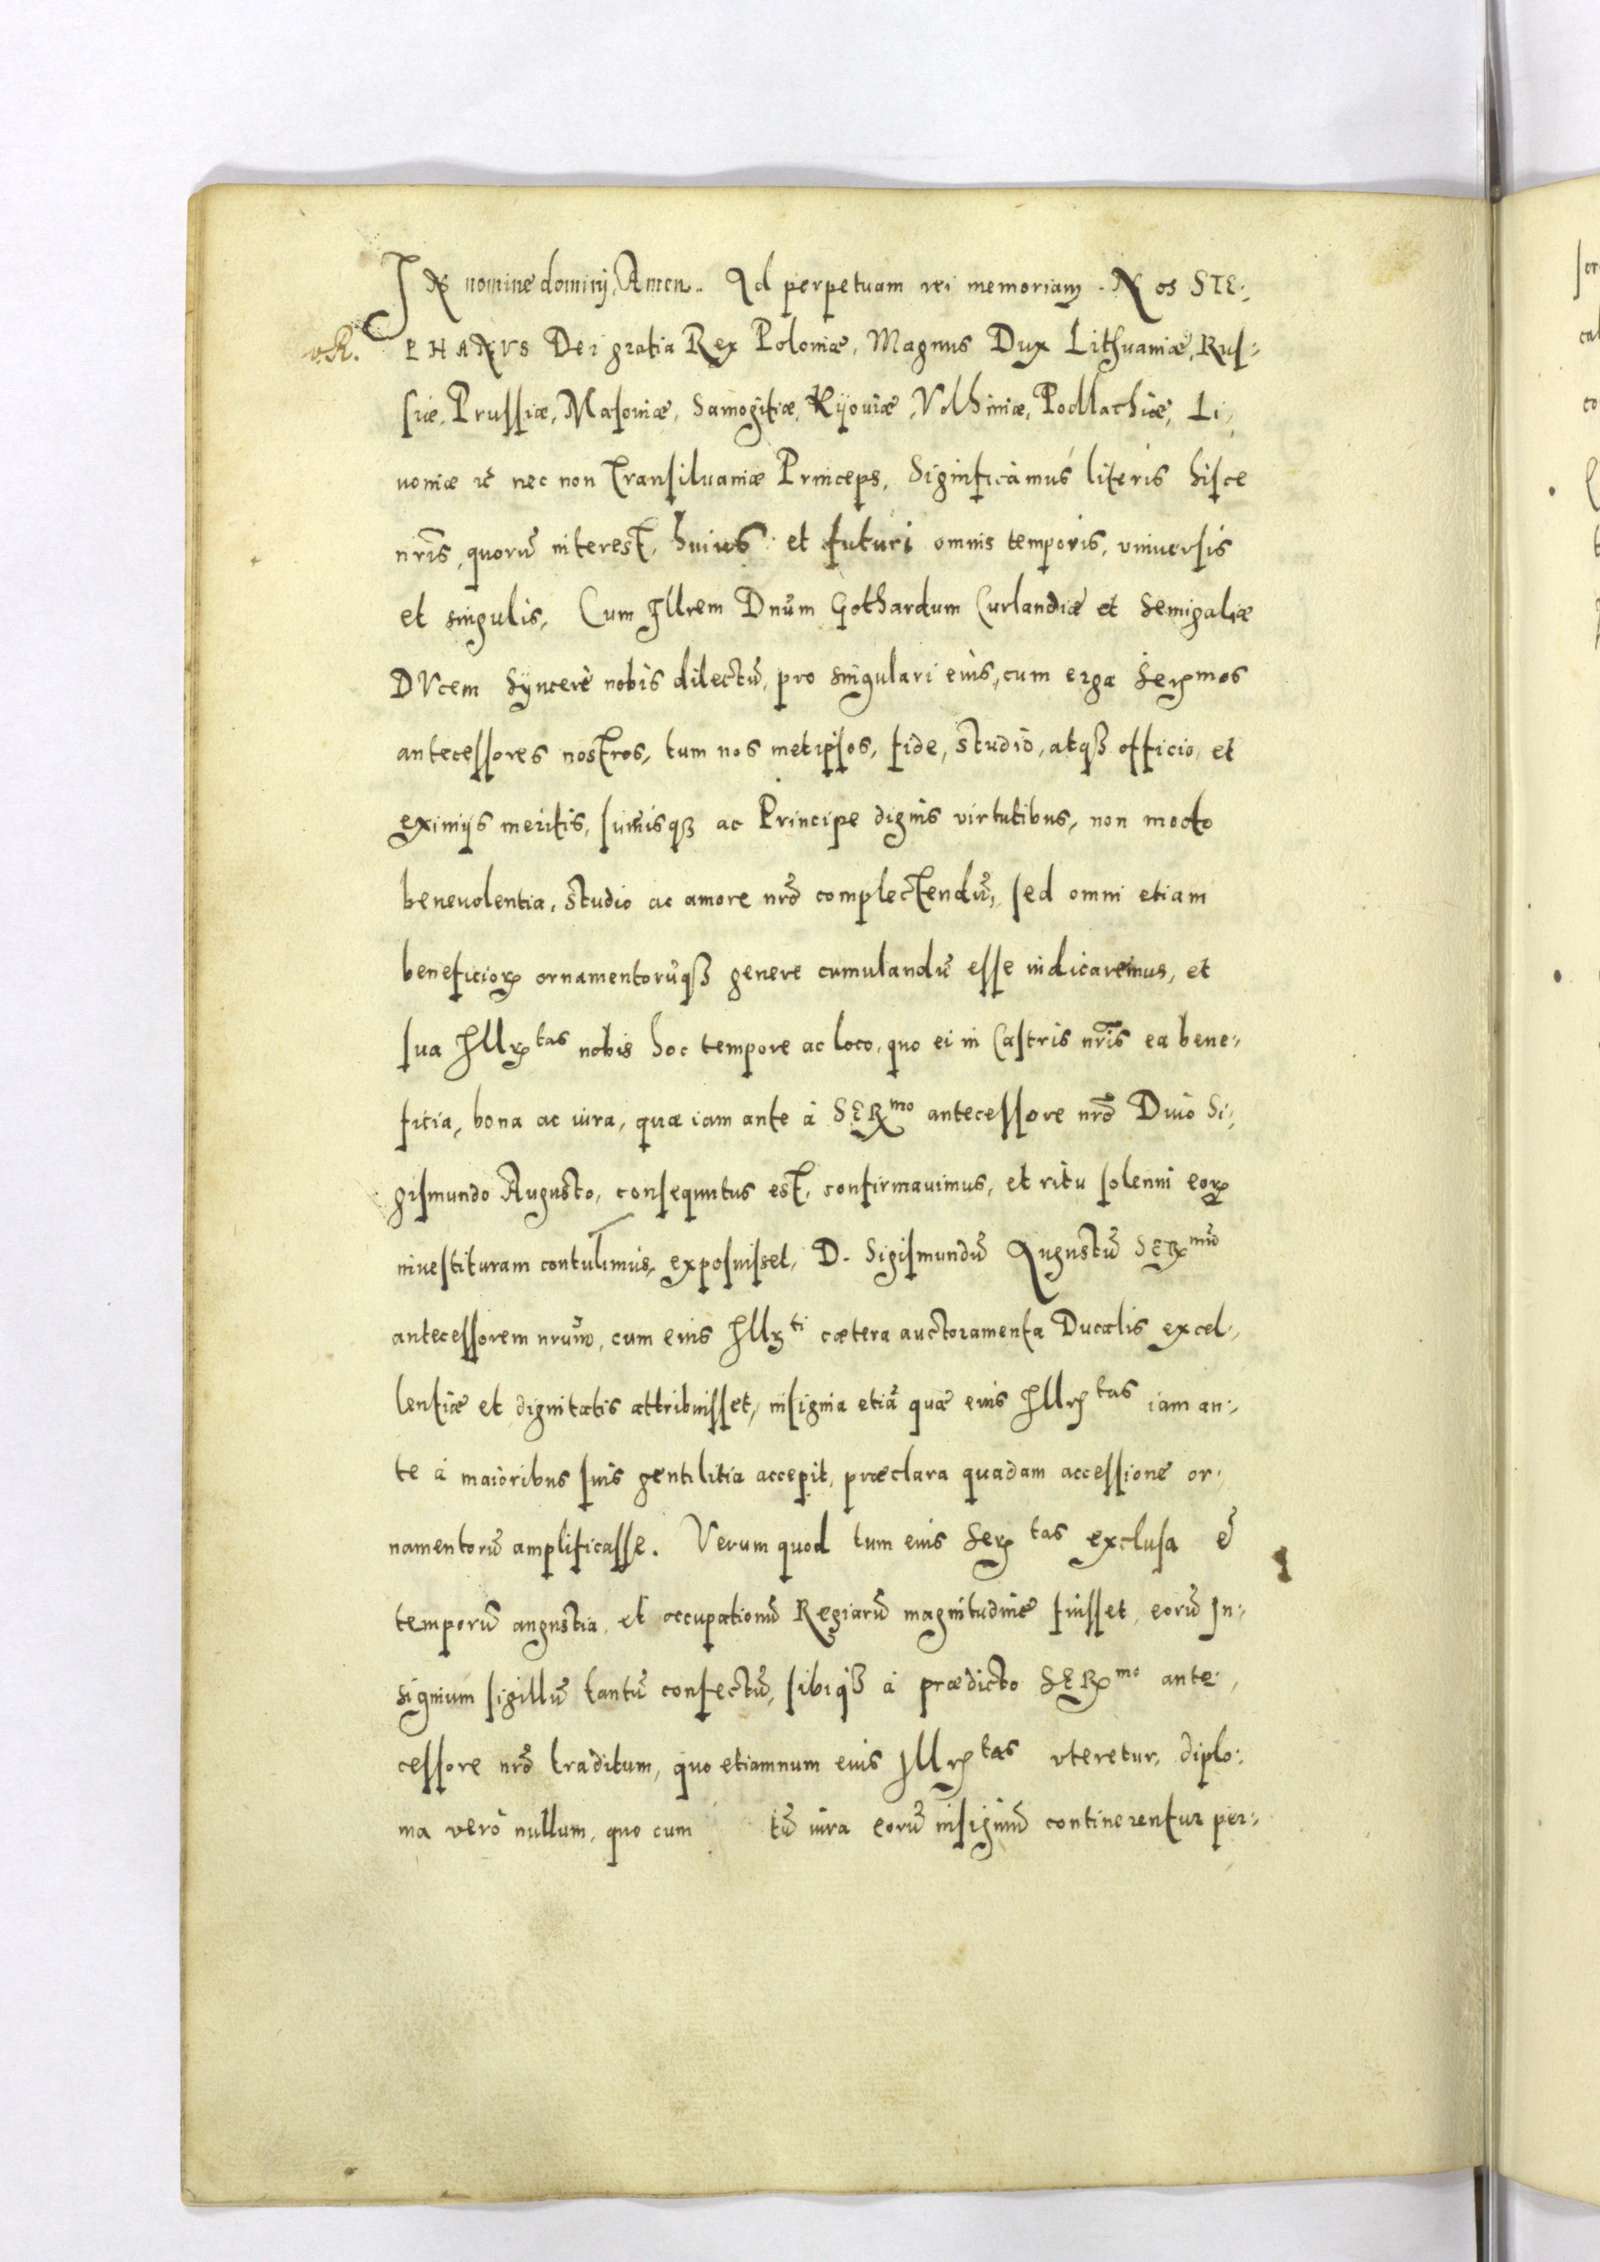 IN nomine dominj, Amen. Ad perpetuam rei memoriam. Nos STE:
PHANVS Dei gratia Rex Poloniæ, Magnus Dux Lithuaniæ, Rus:
siæ, Prussiæ, Masoniæ, Samogitiæ, Kijouiæ, Volhiniæ, Podlachiæ, Li,
uoniæ &c nec non Transiluaniæ Princeps, Significamus literis hisce
nr̃is, quorũ interest, huius et futuri omnis temporis, vniuersis
et singulis, Cum Illrem Dnũm Gothardum Curlandiæ et Semigaliæ
DVcem Syncerè nobis dilectũ, pro singulari eius, cum erga Serꝫmos
antecessores nostros, tum nos metipsos, fide, studio, atqꝫ officio, et
eximijs meritis, sum̃isqꝫ ac Principe dignis virtutibus, non modo
beneuolentia, studio ac amore nr̃o complectendũ, sed omni etiam
beneficioꝝ ornamentorũqꝫ genere cumulandũ esse iudicaremus, et
sua Illꝝtas nobis hoc tempore ac loco, quo ei in Castris nr̃is ea bene:
ficia, bona ac iura, quæ iam ante à SERmo antecessore nr̃o Diuo Si:
gismundo Augusto, consequutus est, confirmauimus, et ritu solenni eoꝝ
inuestituram contulimus, exposuisset, D. Sigismundũ Augustũ SERmũ
antecessorem nrũm, cum eius Illꝝti cætera auctoramenta Ducalis excel:
lentiæ et dignitatis attribuisset, insignia etiã quæ eius Illꝝtas iam an:
te à maioribus suis gentilitia accepit, præclara quadam accessione or:
namentorũ amplificasse. Verum quod tum eius Serꝝtas exclusa ẽ
temporũ angustia, et occupationũ Regiarũ magnitudine fuisset, eorũ In:
signium sigillũ tantũ confectũ, sibiqꝫ à prædicto SERmo ante:
cessore nr̃o traditum, quo etiamnum eius Illꝝtas vteretur, diplo:
ma verò nullum, quo cum tũ iura eorũ insigniũ continerentur per: